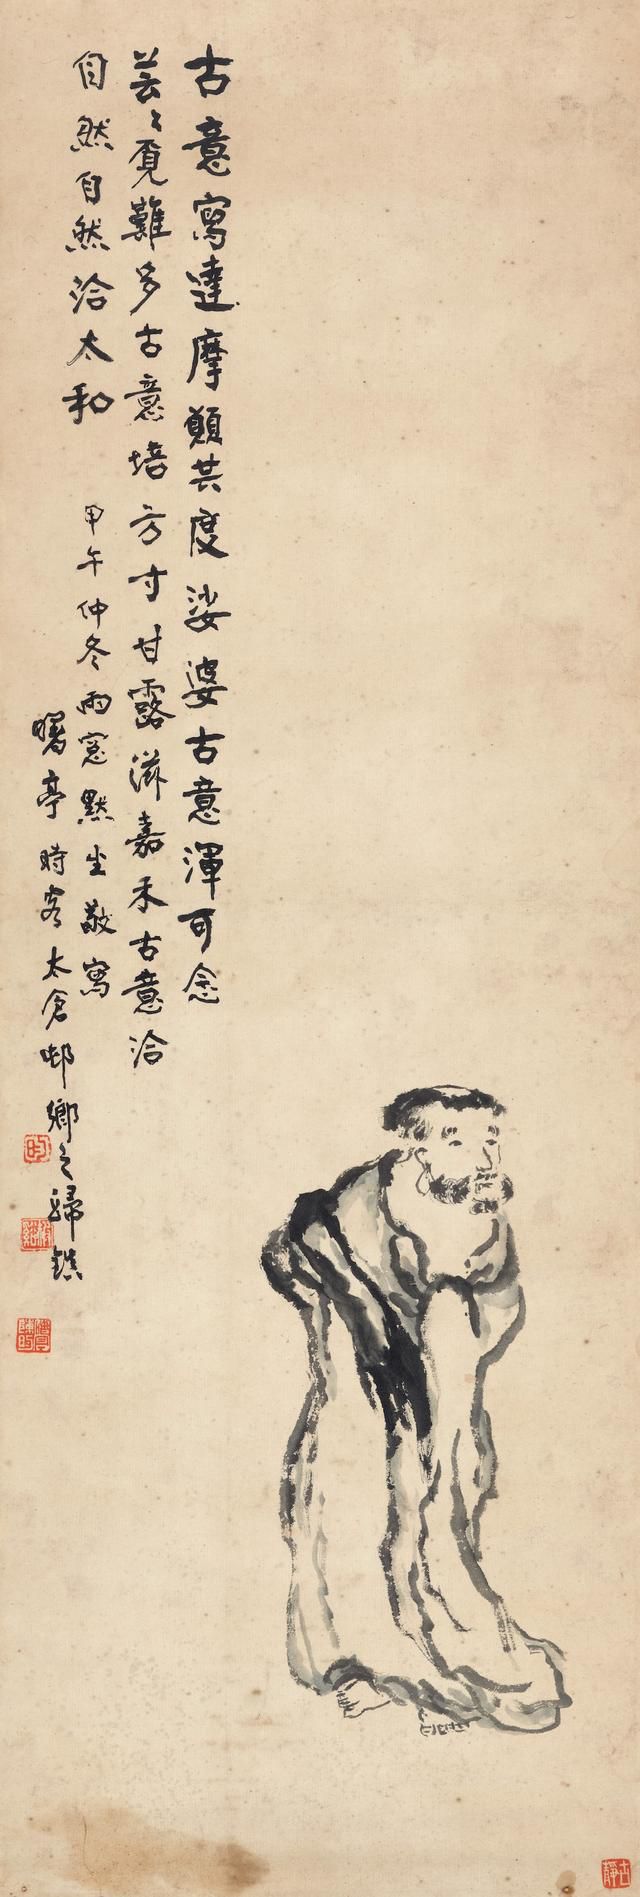 古意寫達摩願共度娑婆古意渾可念
芸〻覓難多古意培方寸甘露滋嘉禾古意洽
自然自然洽太和
甲午仲冬雨窓默坐敬寫
曙亭時客太倉邨鄉之歸鎮